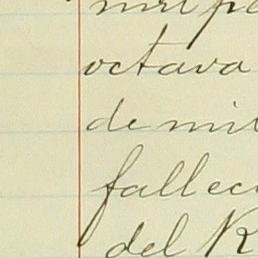 octava
de mil
fallec
del R